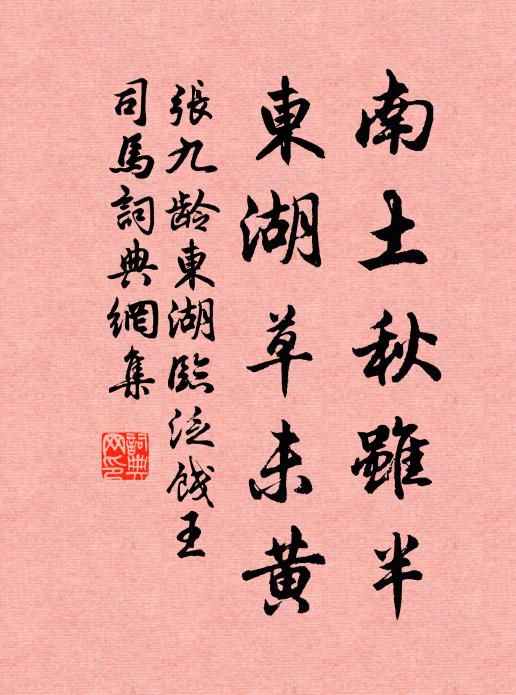 南土秋雖半
東湖草未黃
張九龄東湖臨泛餞王
司馬詞典網集
詞典网印